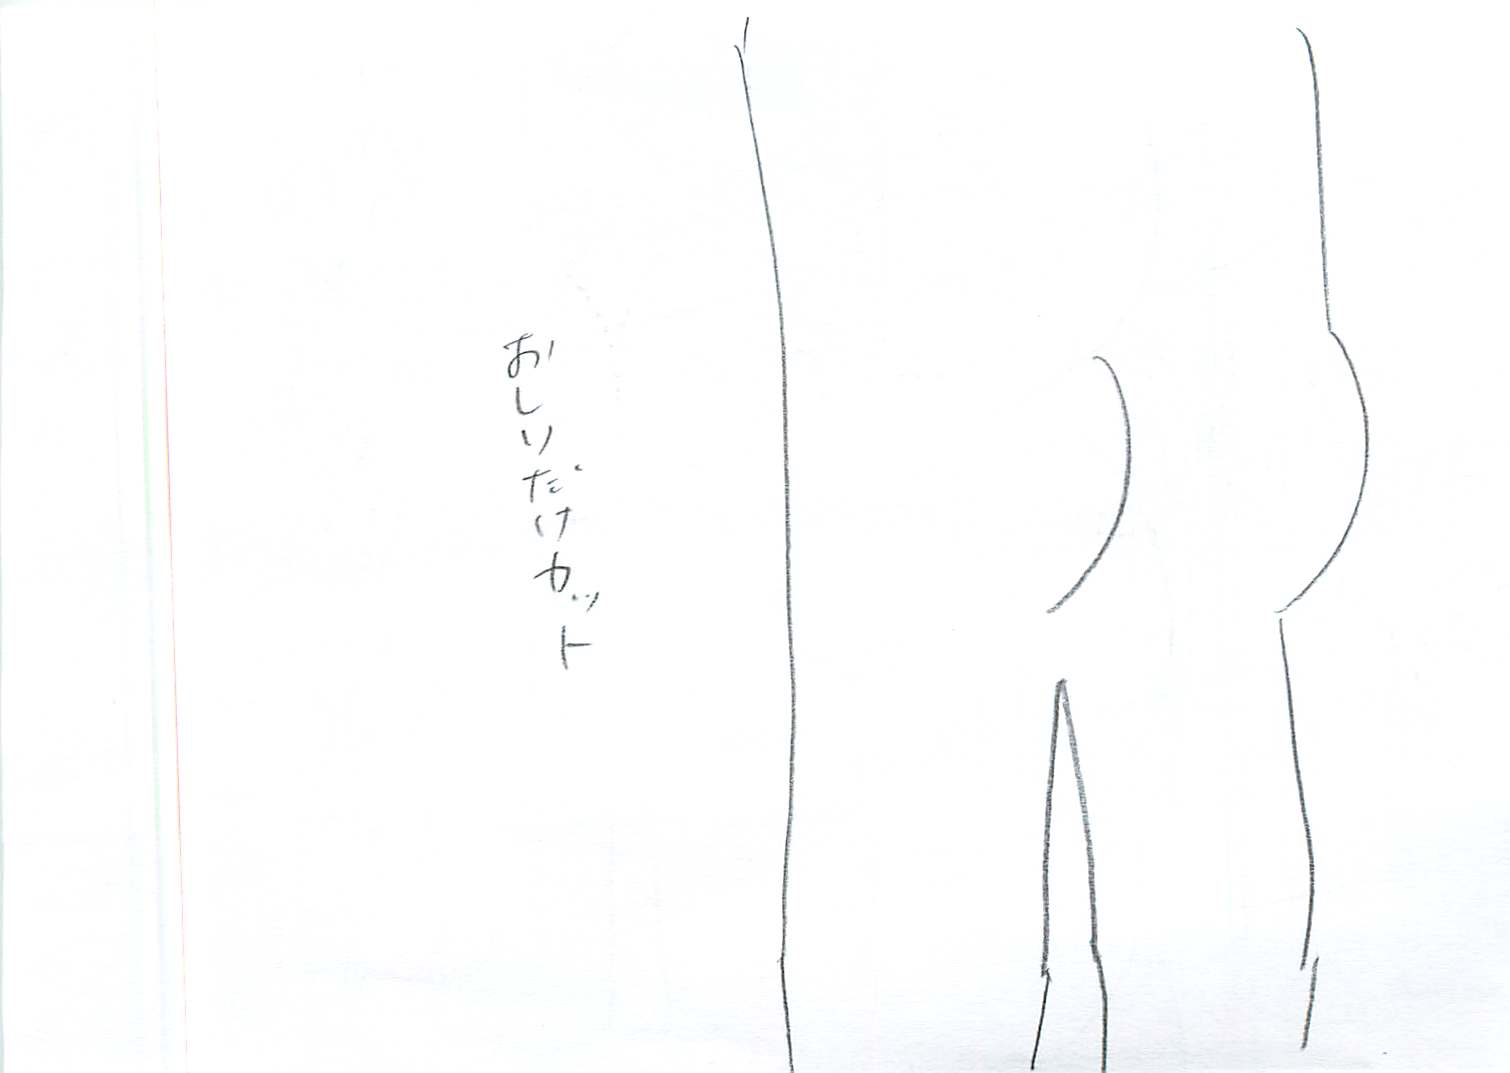 おしりだけカット